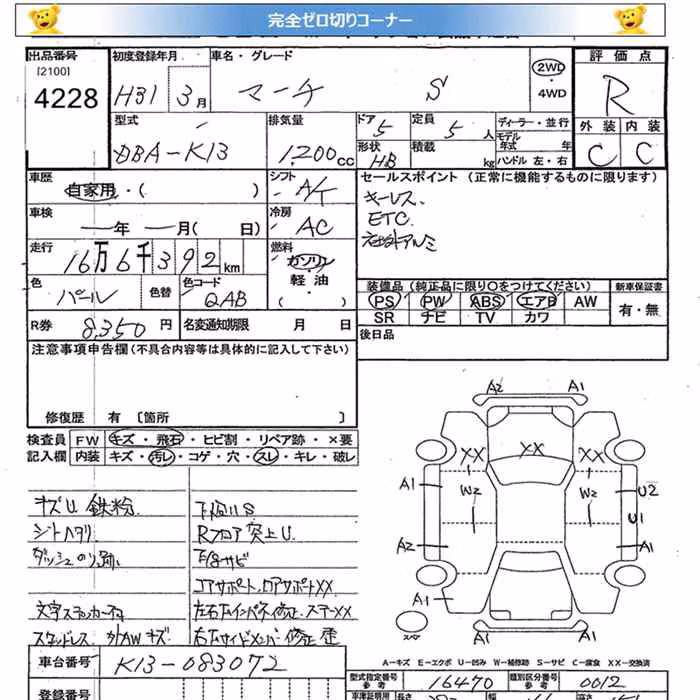 完全ゼロ切りコーナー
出品番号 初度登録年月 車名・グレード 評価点
[2100]
4228 H31 3月 マーチ S 2WD ・ 4WD R
型式 排気量 ドア 5 定員 5人 ディーラー・並行 外装 内装
DBA-K13 1,200cc 形状 HB 積載 kg モデル年式 年 C C
ハンドル 左・右
車歴 自家用・( ) シフト A/T セールスポイント (正常に機能するものに限ります)
車検 ー年 ー月( 日) 冷房 AC キーレス、
ETC、
社外アルミ
走行 16万6千392km 燃料 ガソリン 軽油・( )
色 パール 色替 色コード QAB
装備品 (純正品に限り○をつけてください) 新車保証書
PS PW ABS エアB AW 有・無
SR ナビ TV カワ
R券 8,350円 名変通知期限 月 日 後日品
注意事項申告欄 (不具合内容等は具体的に記入して下さい)
修復歴 有 [箇所 ]
検査員 FW キズ・飛石・ヒビ割・リペア跡・×要
記入欄 内装 キズ・汚レ・コゲ・穴・スレ・キレ・破レ
キズU 鉄粉 下回りS
シートヘタリ Rフロア突上U
ダッシュのり跡 下廻サビ
コアサポート、ロアサポートXX
文字ステッカー 左右インパネ修正、ステーXX
スタッドレス 外AWキズ 右サイドメンバー修正 歪
A2 A1
XX XX XX
A1 W2 W2 U2
U1
A2 A1
A1 A1
スペア
A−キズ E−エクボ U−凹み W−補修跡 S−サビ C−腐食 XX−交換済
車台番号 K13-083072
型式指定番号 参考 16470 類別区分番号 参考 0012
登録番号
車庫証明用 参考 長さ 幅 高さ